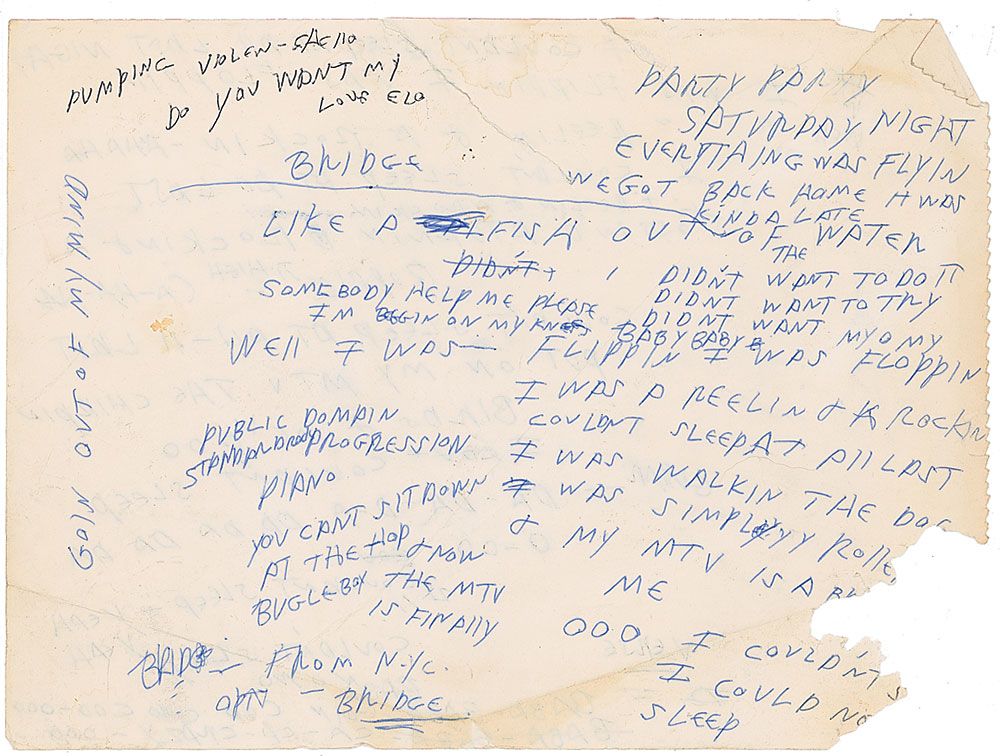 PUMPING VIOLEN-
DO YOU WANT MY
LOVE ELO
PARTY PARTY
SATURDAY NIGHT
EVERYTHING WAS FLYIN
WE GOT BACK HOME IT WAS
KINDA LATE
BRIDGE
LIKE A FISH OUT OF WATER
THE
DIDN'T I DIDN'T WANT TO DO IT
SOMEBODY HELP ME PLEASE DIDNT WANT TO TRY
IM BEGGIN ON MY KNEES BABY BABY DIDNT WANT MY O MY
WELL I WAS— FLIPPIN I WAS FLOPPIN
I WAS A REELIN & A ROCKIN
COULDNT SLEEP AT ALL LAST
I WAS WALKIN THE DOG
I WAS SIMPLY ROLLE
& MY MTV IS A
ME
OOO I COULDN'T S
I COULD NO
SLEEP
PUBLIC DOMAIN
STANDARD PROGRESSION
PIANO
YOU CANT SIT DOWN
AT THE HOP & NOW
BUGLE BOY THE MTV
IS FINALLY
BRIDGE — FROM N.Y.C.
— BRIDGE
GOIN OUT OF MY MIND